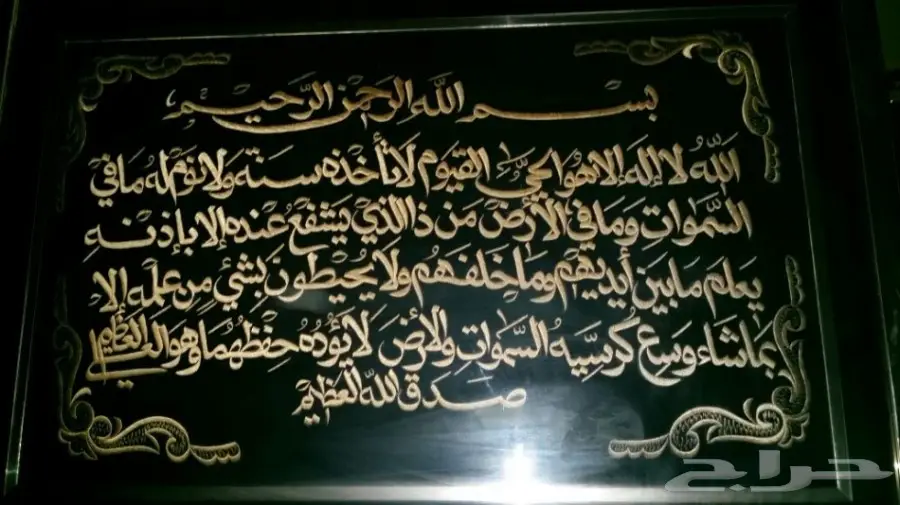 بسم الله الرحمن الرحيم
الله لا إله إلا هو الحي القيوم لا تأخذه سنة ولا نوم له ما في
السموات وما في الأرض من ذا الذي يشفع عنده إلا بإذنه
يعلم ما بين أيديهم وما خلفهم ولا يحيطون بشيء من علمه إلا
بما شاء وسع كرسيه السموات والأرض لا يؤده حفظهما وهو العلي العظيم
صدق الله العظيم
حراج